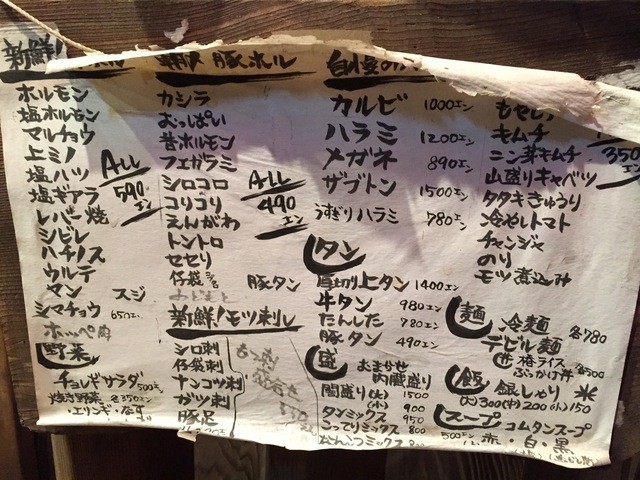 新鮮!
ホルモン
塩ホルモン
マルチョウ
上ミノ
塩ハツ
塩ギアラ
レバー焼
シビレ
ハチノス
ウルテ
マン
スジ
シマチョウ 650エン
ホッペ肉
ALL
590エン
野菜
チョレギサラダ 500エン
焼き野菜 各350エン
豚ホルモン
カシラ
おっぱい
昔ホルモン
フエガラミ
シロコロ
コリコリ
えんがわ
トントロ
セセリ
仔袋
豚タン
ALL
490エン
新鮮!モツ刺し
シロ刺
仔袋刺
ナンコツ刺
ガツ刺
豚足
カルビ 1000エン
ハラミ 1200エン
メガネ 890エン
ザブトン 1500エン
うぎりハラミ 780エン
タン
厚切り上タン 1400エン
牛タン 980エン
たんした 780エン
豚タン 490エン
盛
おまかせ内臓盛り
(大) 1500
(小) 900
タンミックス 950
こってりミックス 800
なんこつミックス
キムチ
ニン芽キムチ
山盛りキャベツ
タタキきゅうり
冷やしトマト
チャンジャ
のり
モツ煮込み
350エン
麺
冷麺
デビル麺
各780
飯
ぶっかけ丼 各500
銀しゃり
(大)300(中)200(小)150
スープ
コムタンスープ
500エン
赤・白・黒